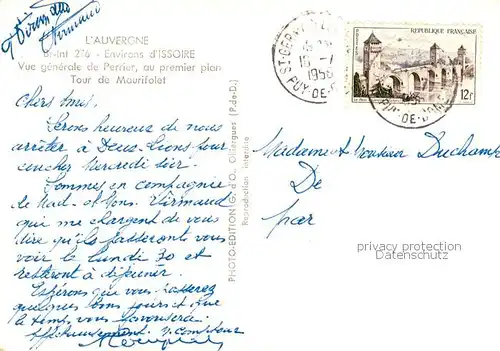 L'AUVERGNE
276 - Environs d'ISSOIRE
Vue générale de Perrier, au premier plan
Tour de Maurifolet
Chers Amis,
Serons heureux de nous
arrêter à Deux-Lions pour
coucher Mercredi soir.
Sommes en compagnie
de Mad. et Mons. Virmaud
qui me chargent de vous
dire qu'ils passeront vous
voir le lundi 30 et
resteront à déjeuner.
Espérons que vous passerez
quelques bons jours et que
le temps vous favorisera.
Affectueusement. y comptons
PHOTO-EDITION G. d'O. Gillergues (P.-de-D.)
Reproduction interdite
ST-GERMAIN
1958
PUY-DE-D
REPUBLIQUE FRANÇAISE
12F
PUY-DE-DÔME
Madame et Monsieur Duchamp
De
par
privacy protection
Datenschutz